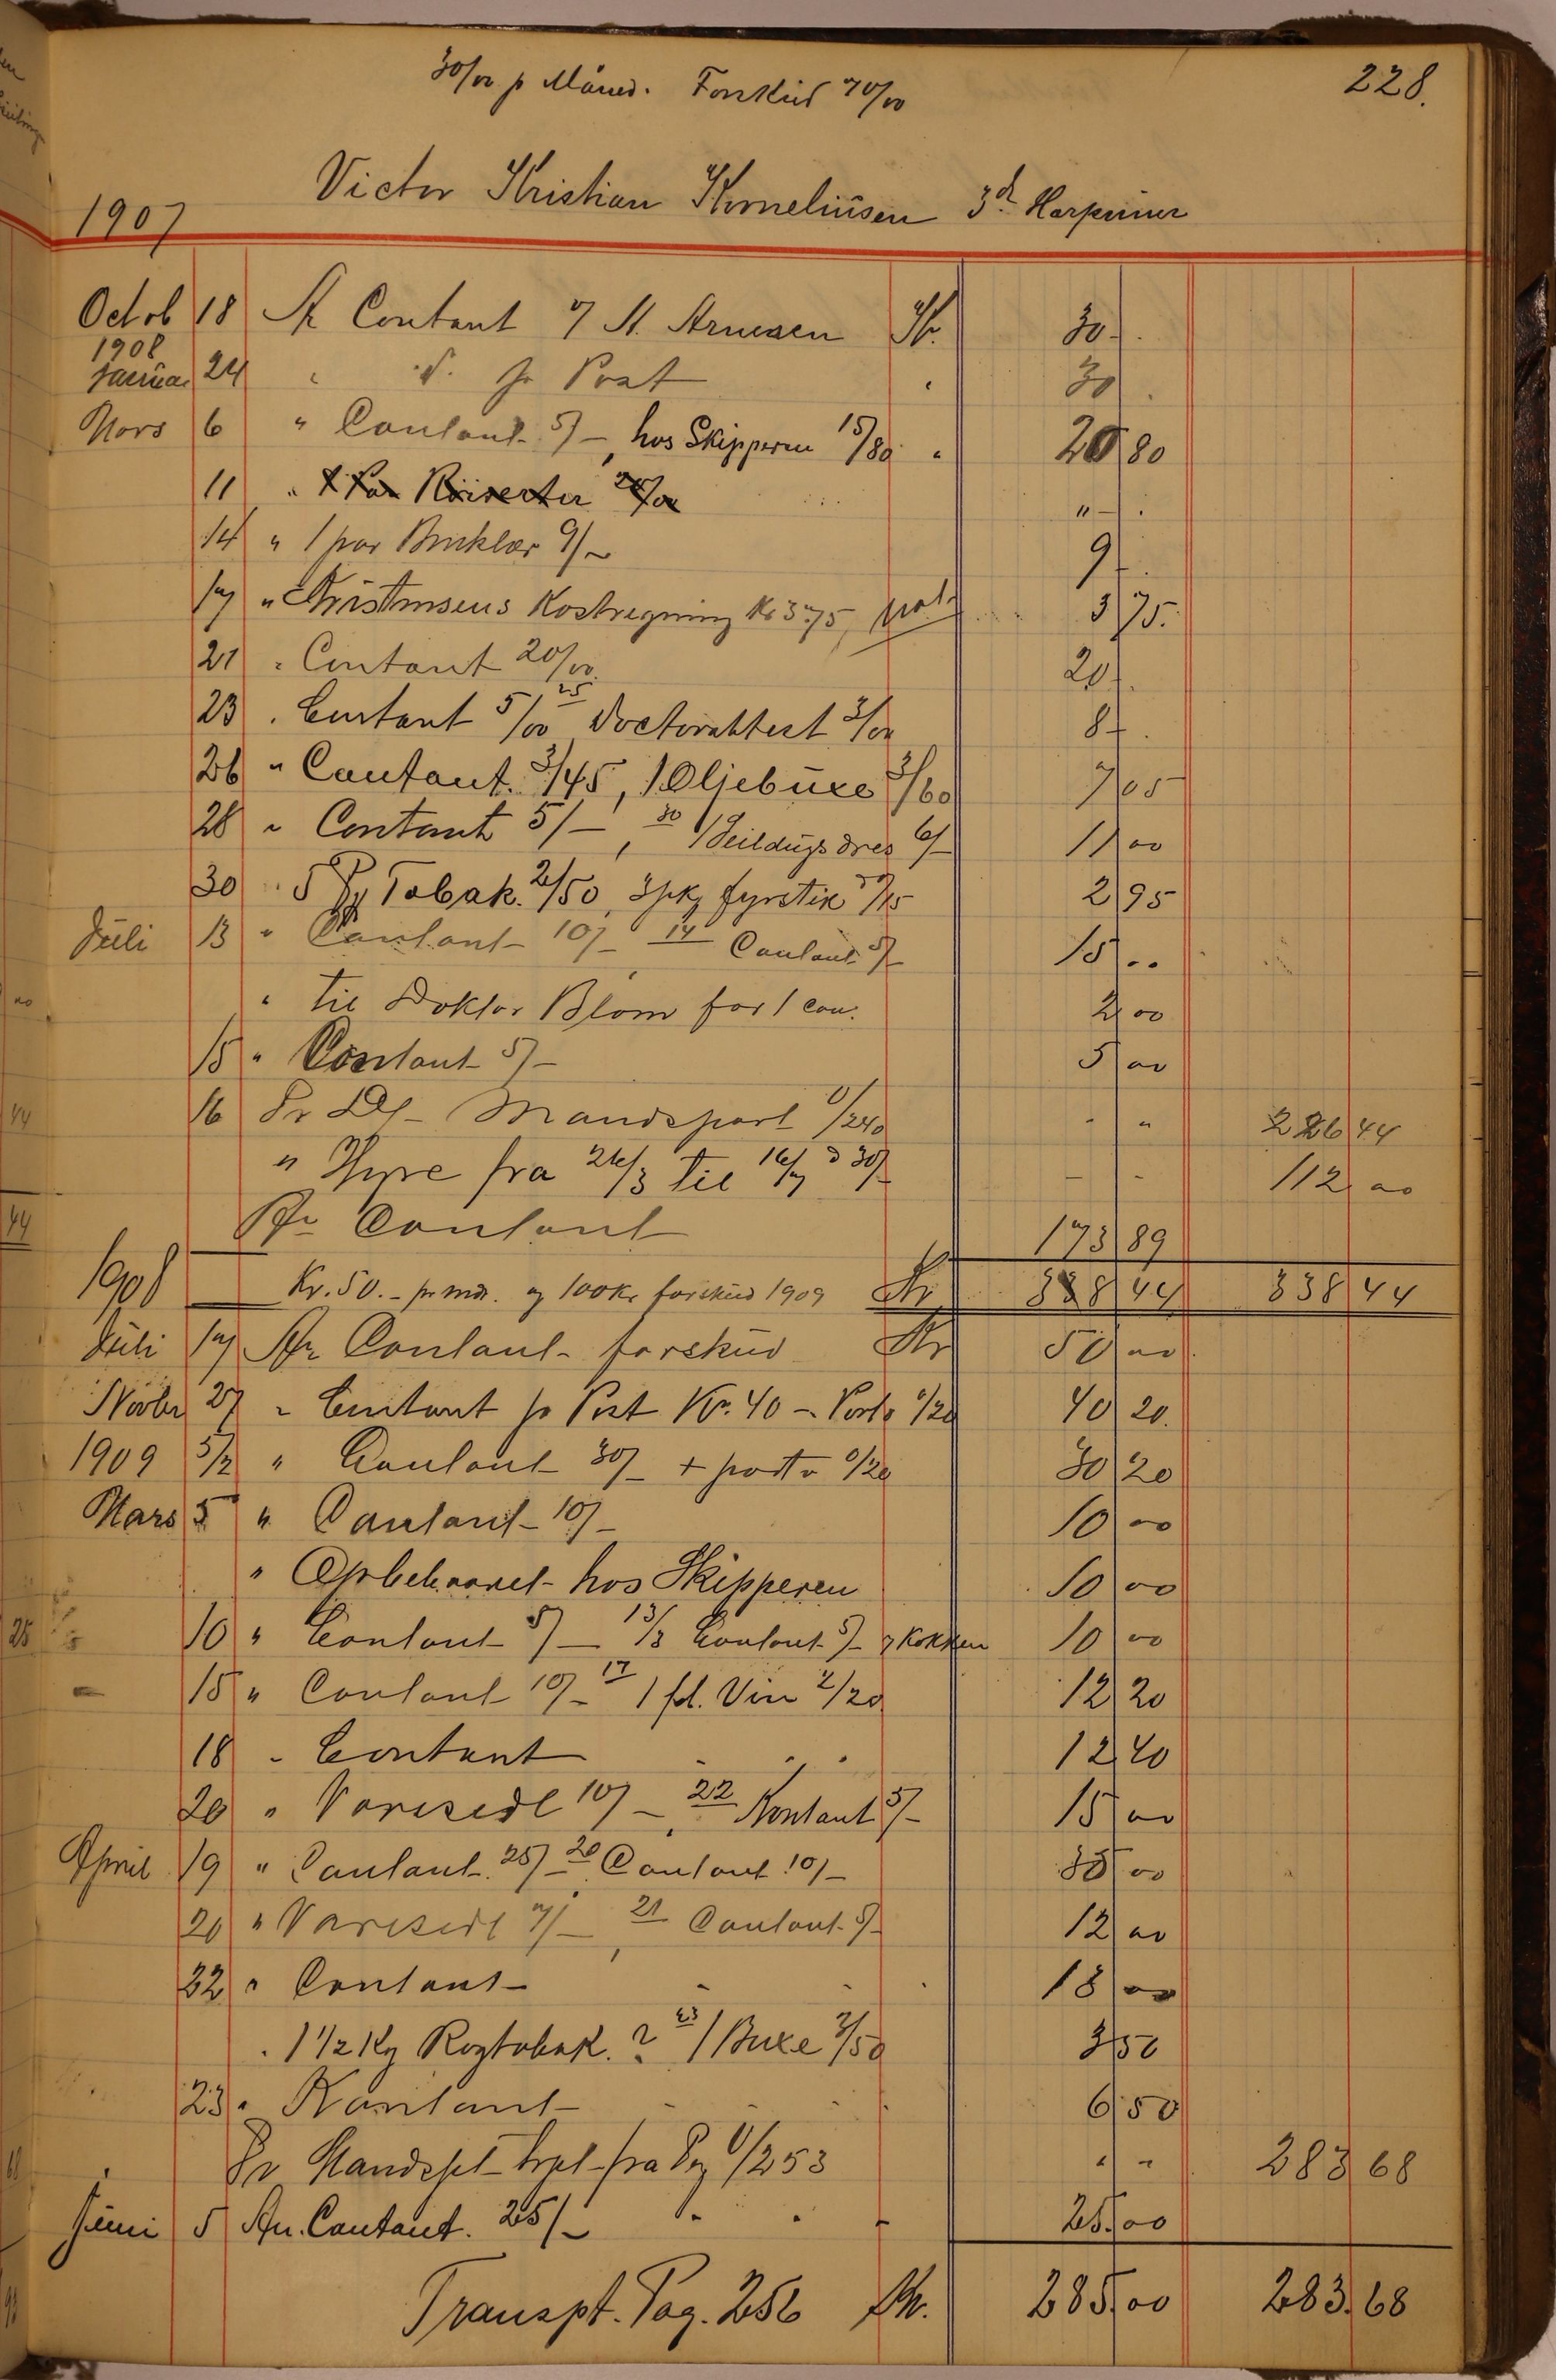 30/00 p Måned. Forskud 70/00
228.
Victor Kristian Korneliusen 3d Harpuner
1907
Octob 18 An Contant v/ M. Arnesen Kr. 30 -
1908
Januar 24 " D. pr Post " 30 .
Mars 6 " Contant 5/-, hos Skipperen 15/80 " 20 80
11 " 1 Par 20/00 " - .
14 " 1 par Buklær 9/- 9 -
17 " Kristensens Kostregning Kr 3.75, 3 75.
21 " Contant 20/00. 20 -
23 " Contant 5/00 25 Doctorattest 3/00 8 -
26 " Contant. 3/45, 1 Oljebuxe 3/60 7 05
28 " Contant 5/-, 30 1 Seildugsdres 6/- 11 00
30 " 5 Pk Tobak. 2/50, 3 pk fyrstik 0/15 2 95
Juli 13 " Contant 10/- 14 Contant 5/- 15 ..
" til Doktor Blom for 1 con. 2 00
15 " Contant 5/- 5 00
16 Pr Mandspart 1/240 " " 226 44
" Hyre fra 26/3 til 16/7 a 30/- - - 112 00
An Contant 173 89
1908 Kr. 50. - pr md. og 100 Kr forskud 1909 Kr 338 44 338 44
Juli 17 An Contant forskud Kr 50 00
Novbr 27 " Contant pr Post Kr. 40 - Porto 0/20 40 20.
1909 5/2 " Contant 30/- + porto 0/20 30 20
Mars 5 " Contant 10/- 10 00
" Opbevaret hos Skipperen 10 00
10 " Contant 5/- 13/3 Contant 5/- v/ Kokken 10 00
15 " Contant 10/- 17 1 fl. Vin 2/20 12 20
18 " Contant 12 40
20 " Varesedl 10/-, 22 Kontant 5/- 15 00
April 19 " Contant 25/- 20 Contant 10/- 35 00
20 " Varesedl 7/-, 21 Contant 5/- 12 00
22 " Contant 18 00
" 1 1/2 Kg Røgtobak. ? 23 1 Buxe 3/50 3 50
23 " Kontant 6 50
Pr Mandspt fra Pag 1/253 " " 283 68
Juni 5 An. Contant. 25/- 25.00
Transpt. Pag. 256 Kr. 285.00 283.68